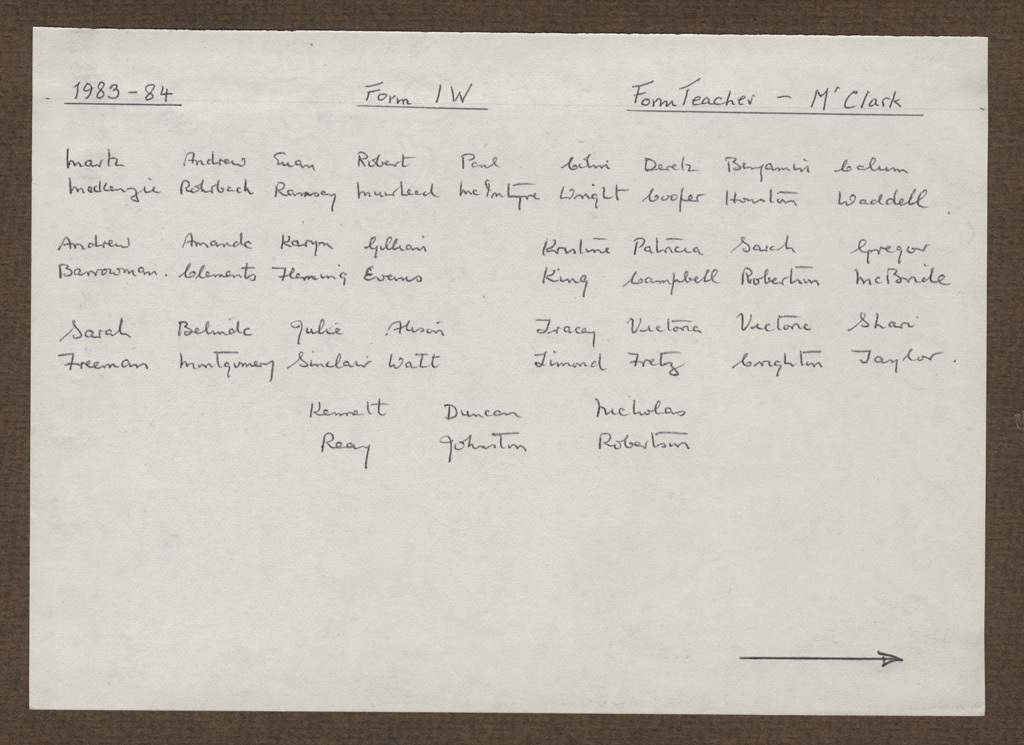 1983-84 Form 1W Form Teacher - Mr Clark
Mark Andrew Euan Robert Paul Colin Derek Benjamin Calum
Mackenzie Rohrbach Ramsay Muirhead McIntyre Wright Cooper Houston Waddell
Andrew Amanda Karyn Gillian Kristine Patricia Sarah Gregor
Barrowman. Clements Fleming Evans King Campbell Robertson McBride
Sarah Belinda Julie Alison Tracey Victoria Victoria Shari
Freeman Montgomery Sinclair Watt Timond Fretz Crighton Taylor.
Kenneth Duncan Nicholas
Reay Johnston Robertson